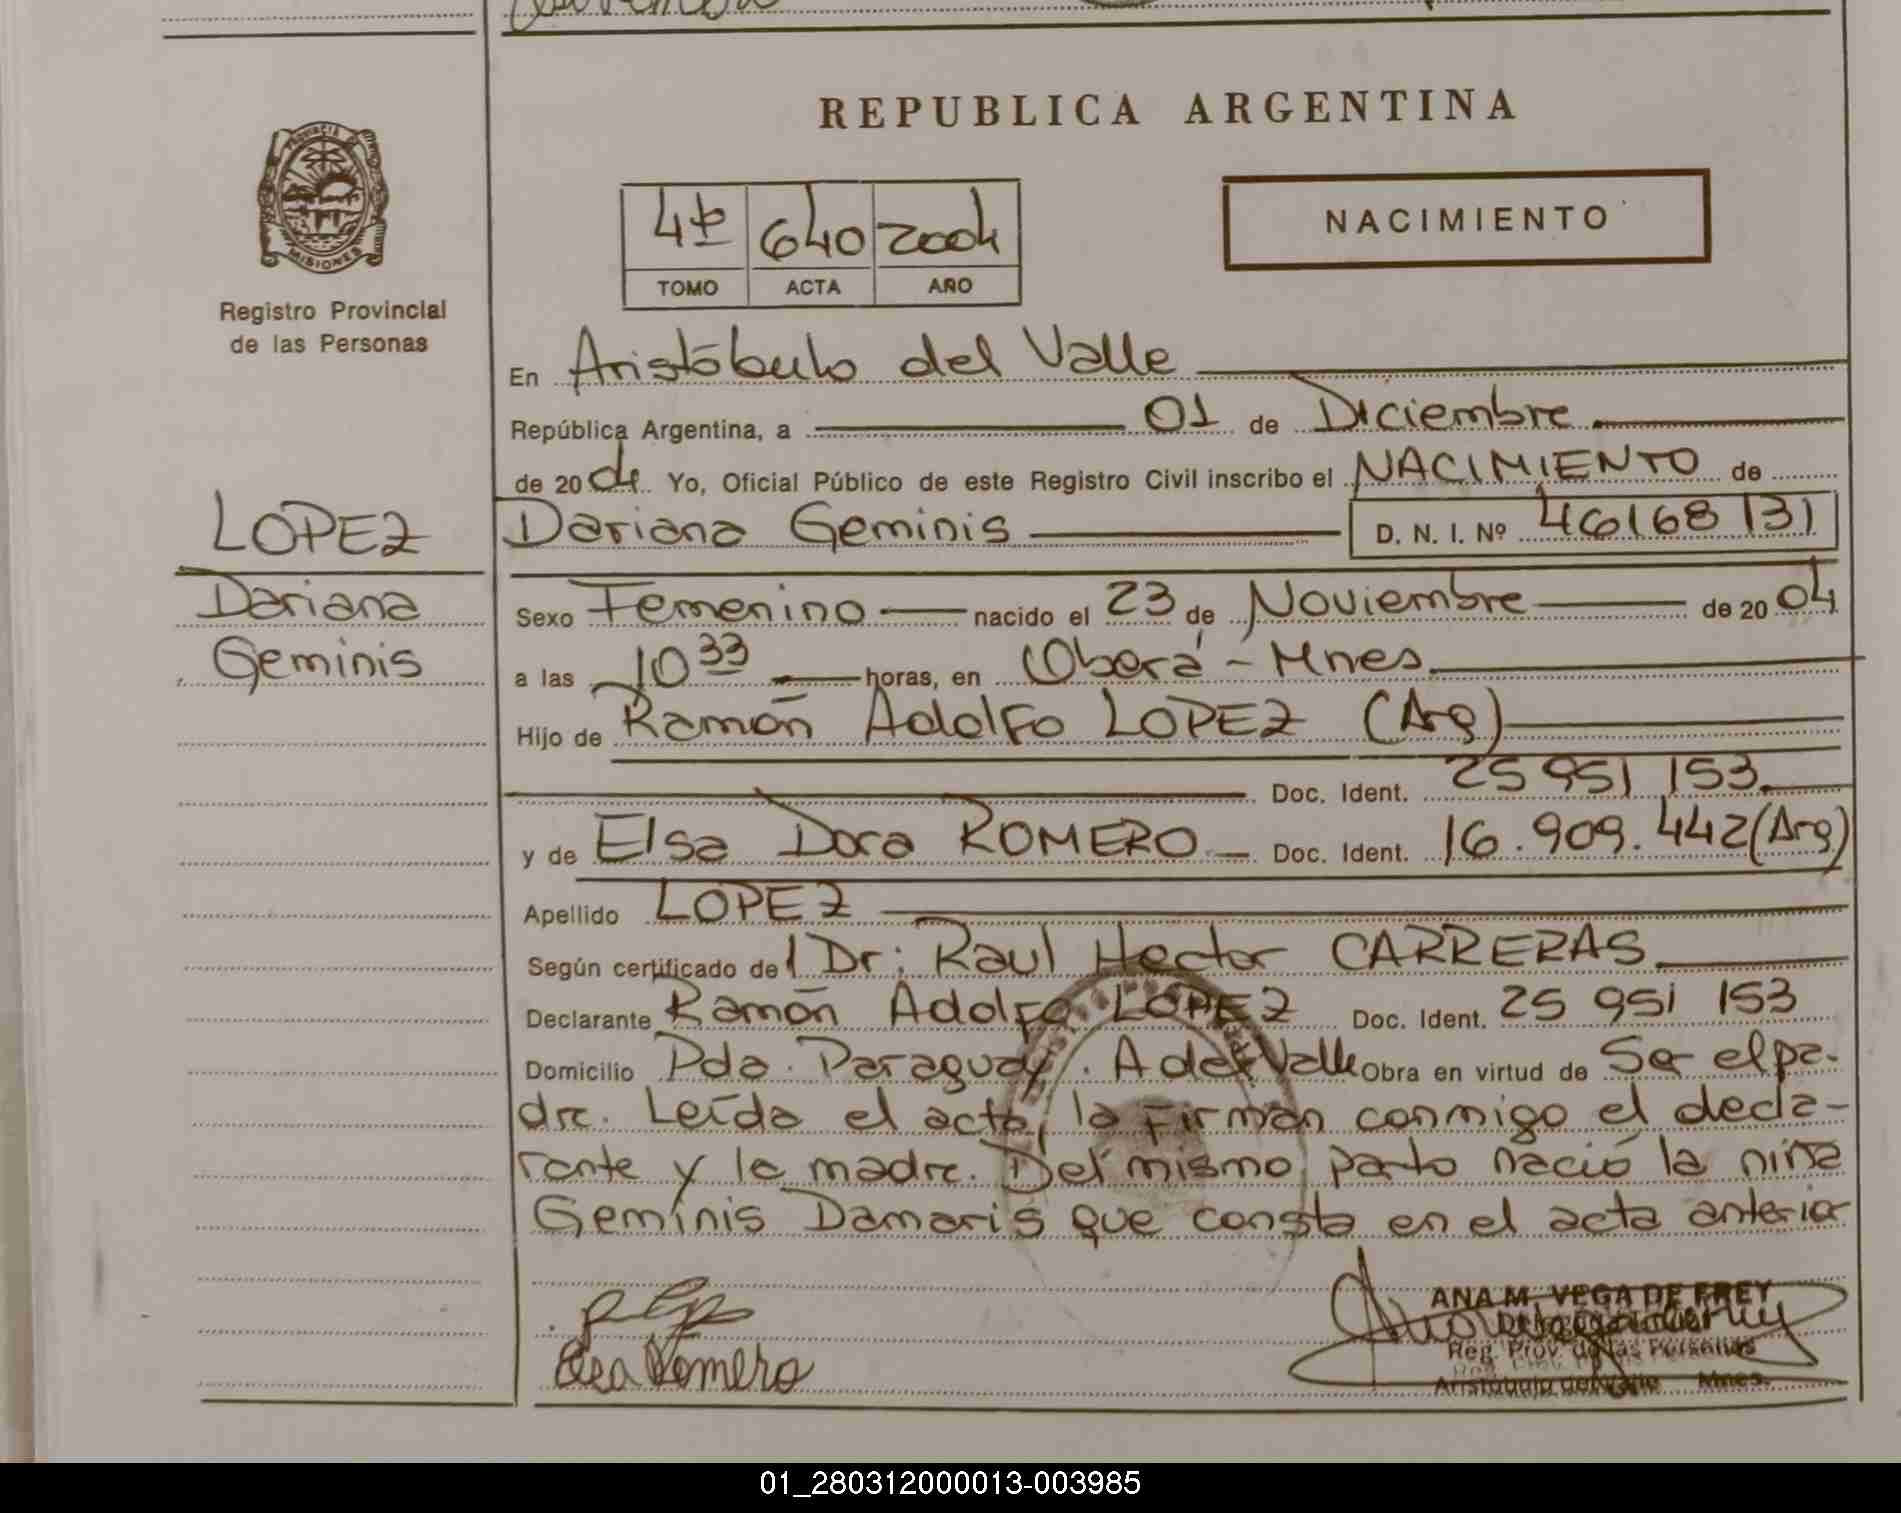 REPUBLICA ARGENTINA
PROVINCIA DE
MISIONES
Registro Provincial
de las Personas
NACIMIENTO
4to 640 2004
TOMO ACTA AÑO
En Aristóbulo del Valle
República Argentina, a 01 de Diciembre
de 2004. Yo, Oficial Público de este Registro Civil inscribo el NACIMIENTO de
LOPEZ
Dariana
Geminis
Dariana Geminis D. N. I. Nº 46168131
Sexo Femenino nacido el 23 de Noviembre de 2004
a las 10 33 horas, en Oberá - Mnes.
Hijo de Ramón Adolfo LOPEZ (Arg)
Doc. Ident. 25 951 153.
y de Elsa Dora ROMERO Doc. Ident. 16.909.442 (Arg)
Apellido LOPEZ
Según certificado de Dr: Raul Hector CARRERAS
Declarante Ramón Adolfo LOPEZ Doc. Ident. 25 951 153
Domicilio Pda. Paraguay. A del Valle Obra en virtud de Ser el pa-
dre. Leída el acta, la Firman conmigo el decla-
rante y la madre. Del mismo parto nació la niña
Geminis Damaris que consta en el acta anterior
Elsa Romero
ANA M. VEGA DE FREY
Reg. Prov. de las Personas
Aristóbulo del Valle Mnes.
01_280312000013-003985